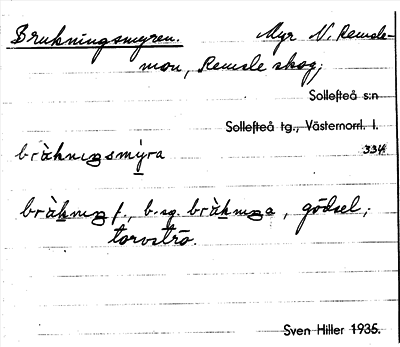 Brukningsmyren. Myr N. Remsle-
mon, Remsle skog;
Sollefteå s:n
Sollefteå tg., Västernorrl. l.
bràkniŋsmýra 334
bràkniŋ f., b. sg. bràkniŋa, gödsel;
torvströ.
Sven Hiller 1935.